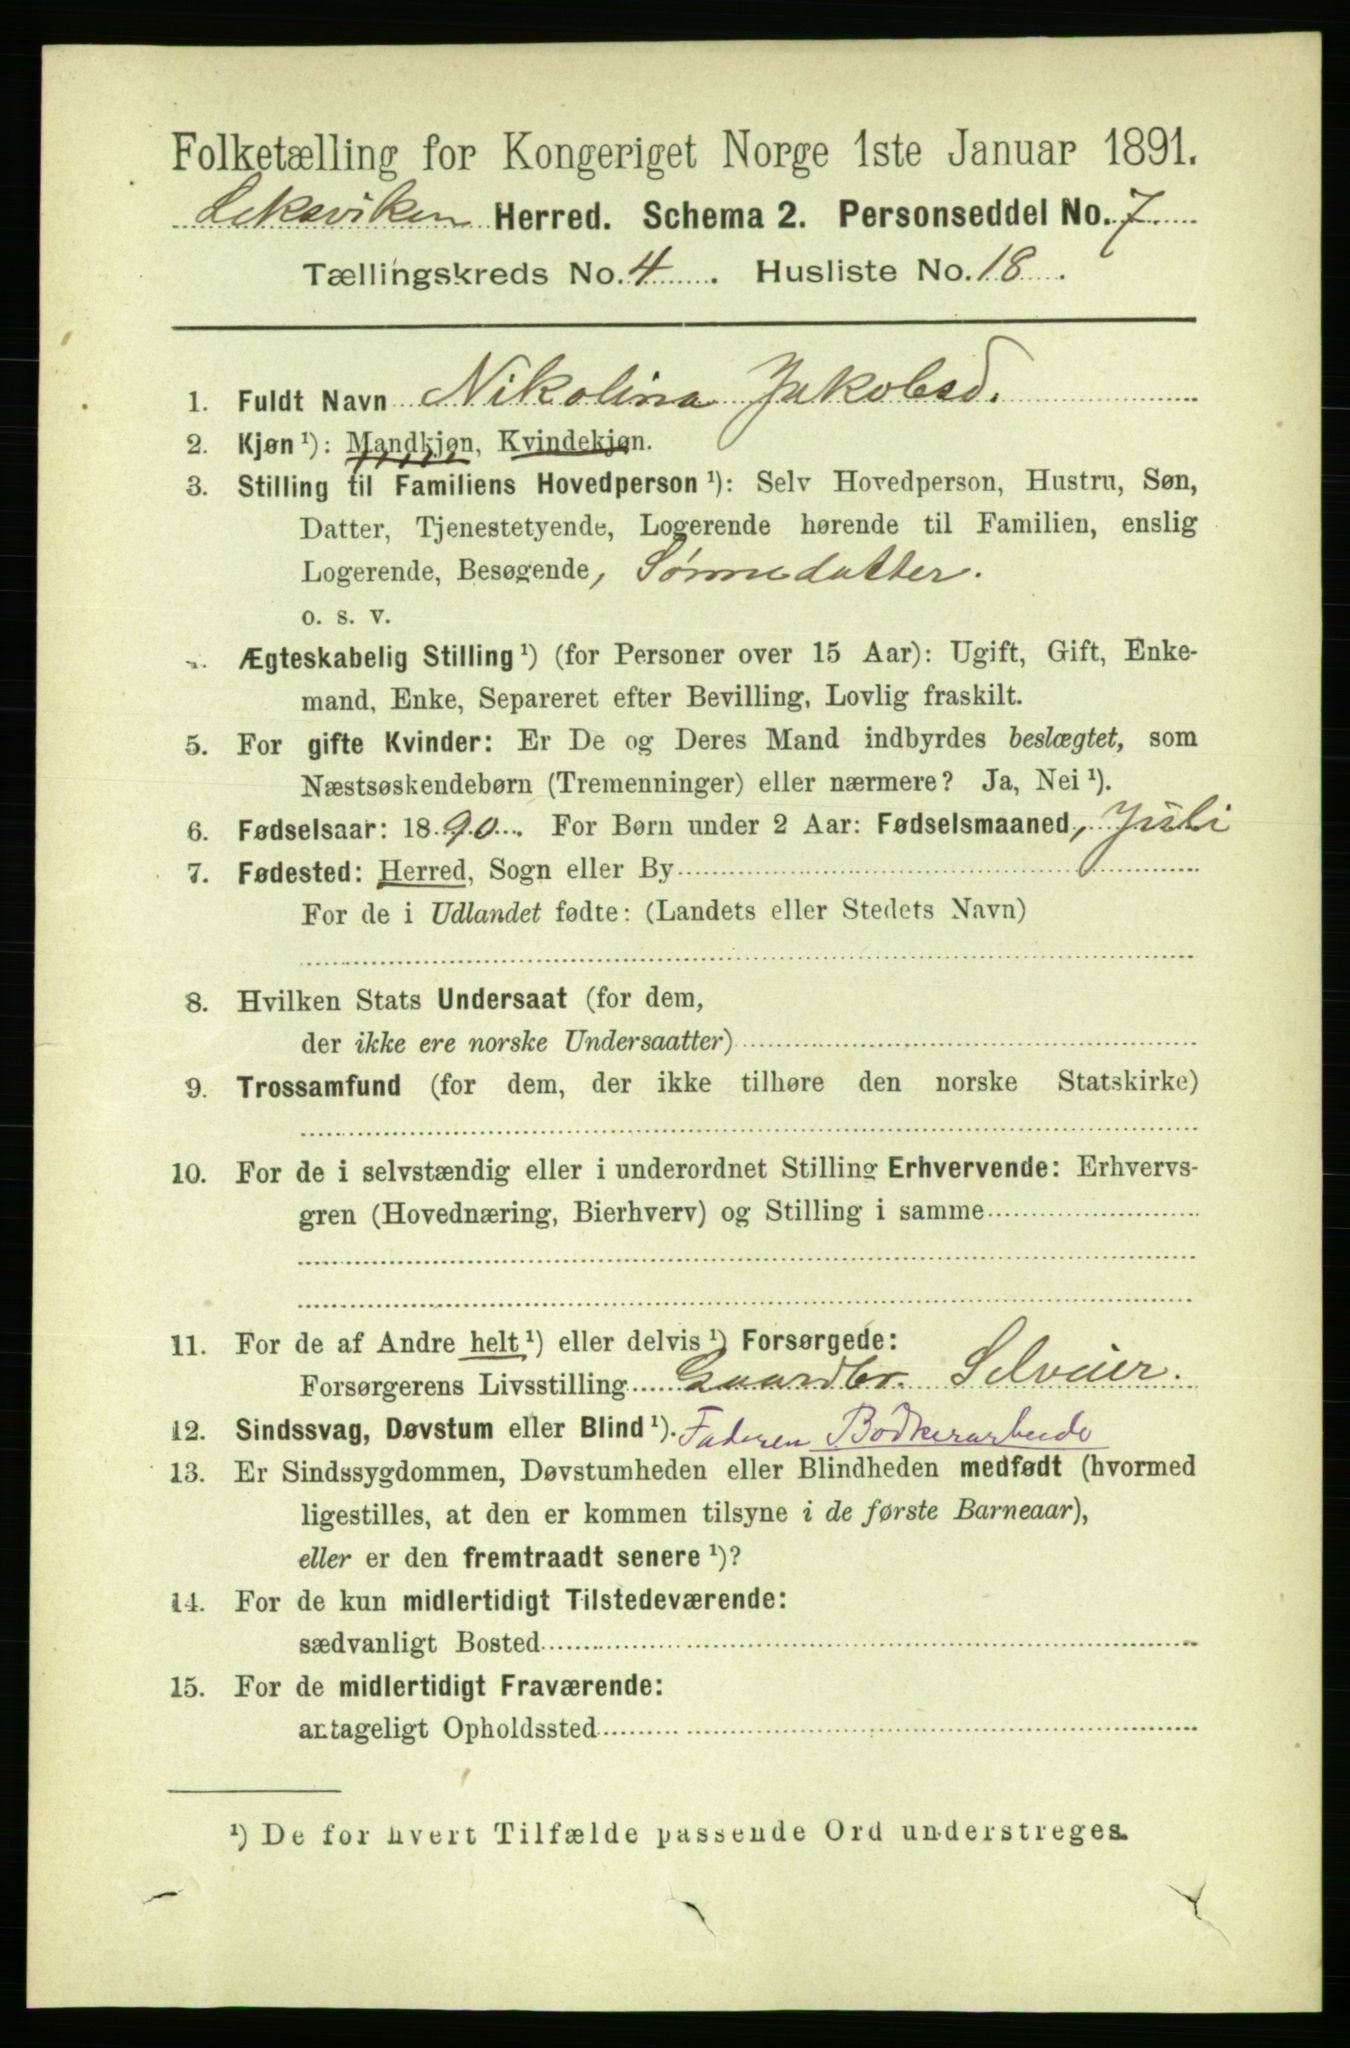 Folketælling for Kongeriget Norge 1ste Januar 1891.
Leksviken Herred. Schema 2. Personseddel No. 7
Tællingskreds No. 4. Husliste No. 18.
1. Fuldt Navn Nikolina Jakobsd.
2. Kjøn ¹): Mandkjøn, Kvindekjøn.
3. Stilling til Familiens Hovedperson ¹): Selv Hovedperson, Hustru, Søn,
Datter, Tjenestetyende, Logerende hørende til Familien, enslig
Logerende, Besøgende, Sønnedatter.
o. s. v.
Ægteskabelig Stilling ¹) (for Personer over 15 Aar): Ugift, Gift, Enke-
mand, Enke, Separeret efter Bevilling, Lovlig fraskilt.
5. For gifte Kvinder: Er De og Deres Mand indbyrdes beslægtet, som
Næstsøskendebørn (Tremenninger) eller nærmere? Ja, Nei ¹).
6. Fødselsaar: 1890. For Børn under 2 Aar: Fødselsmaaned, Juli
7. Fødested: Herred, Sogn eller By
For de i Udlandet fødte: (Landets eller Stedets Navn)
8. Hvilken Stats Undersaat (for dem,
der ikke ere norske Undersaatter)
9. Trossamfund (for dem, der ikke tilhøre den norske Statskirke)
10. For de i selvstændig eller i underordnet Stilling Erhvervende: Erhvervs-
gren (Hovednæring, Bierhverv) og Stilling i samme
11. For de af Andre helt ¹) eller delvis ¹) Forsørgede:
Forsørgerens Livsstilling Gaardbr. Selveier.
12. Sindssvag, Døvstum eller Blind ¹). Faderen Bødkerarbeide
13. Er Sindssygdommen, Døvstumheden eller Blindheden medfødt (hvormed
ligestilles, at den er kommen tilsyne i de første Barneaar),
eller er den fremtraadt senere ¹)?
14. For de kun midlertidigt Tilstedeværende:
sædvanligt Bosted
15. For de midlertidigt Fraværende:
antageligt Opholdssted
¹) De for hvert Tilfælde passende Ord understreges.